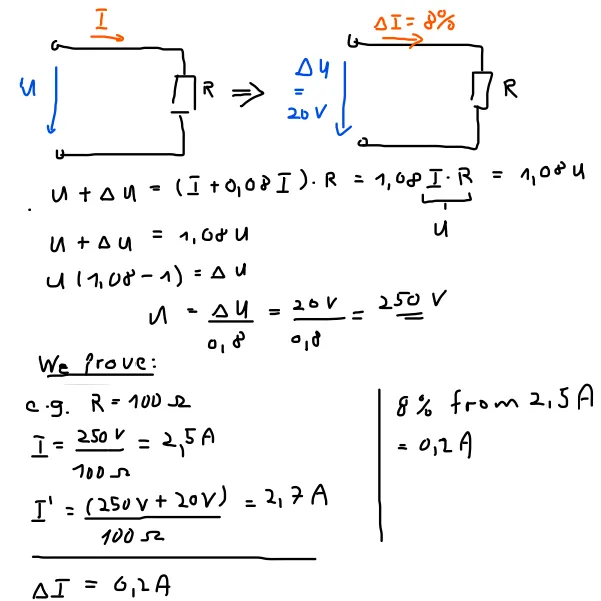 I
ΔI = 8%
U
R
⇒
ΔU
=
20V
R
U + ΔU = (I + 0,08 I) · R = 1,08 I · R = 1,08 U
U
U + ΔU = 1,08 U
U (1,08 - 1) = ΔU
U = ΔU / 0,8 = 20V / 0,8 = 250 V
We prove:
e.g. R = 100 Ω
I = 250 V / 100 Ω = 2,5 A
I' = (250V + 20V) / 100 Ω = 2,7 A
ΔI = 0,2 A
8% from 2,5 A
= 0,2 A